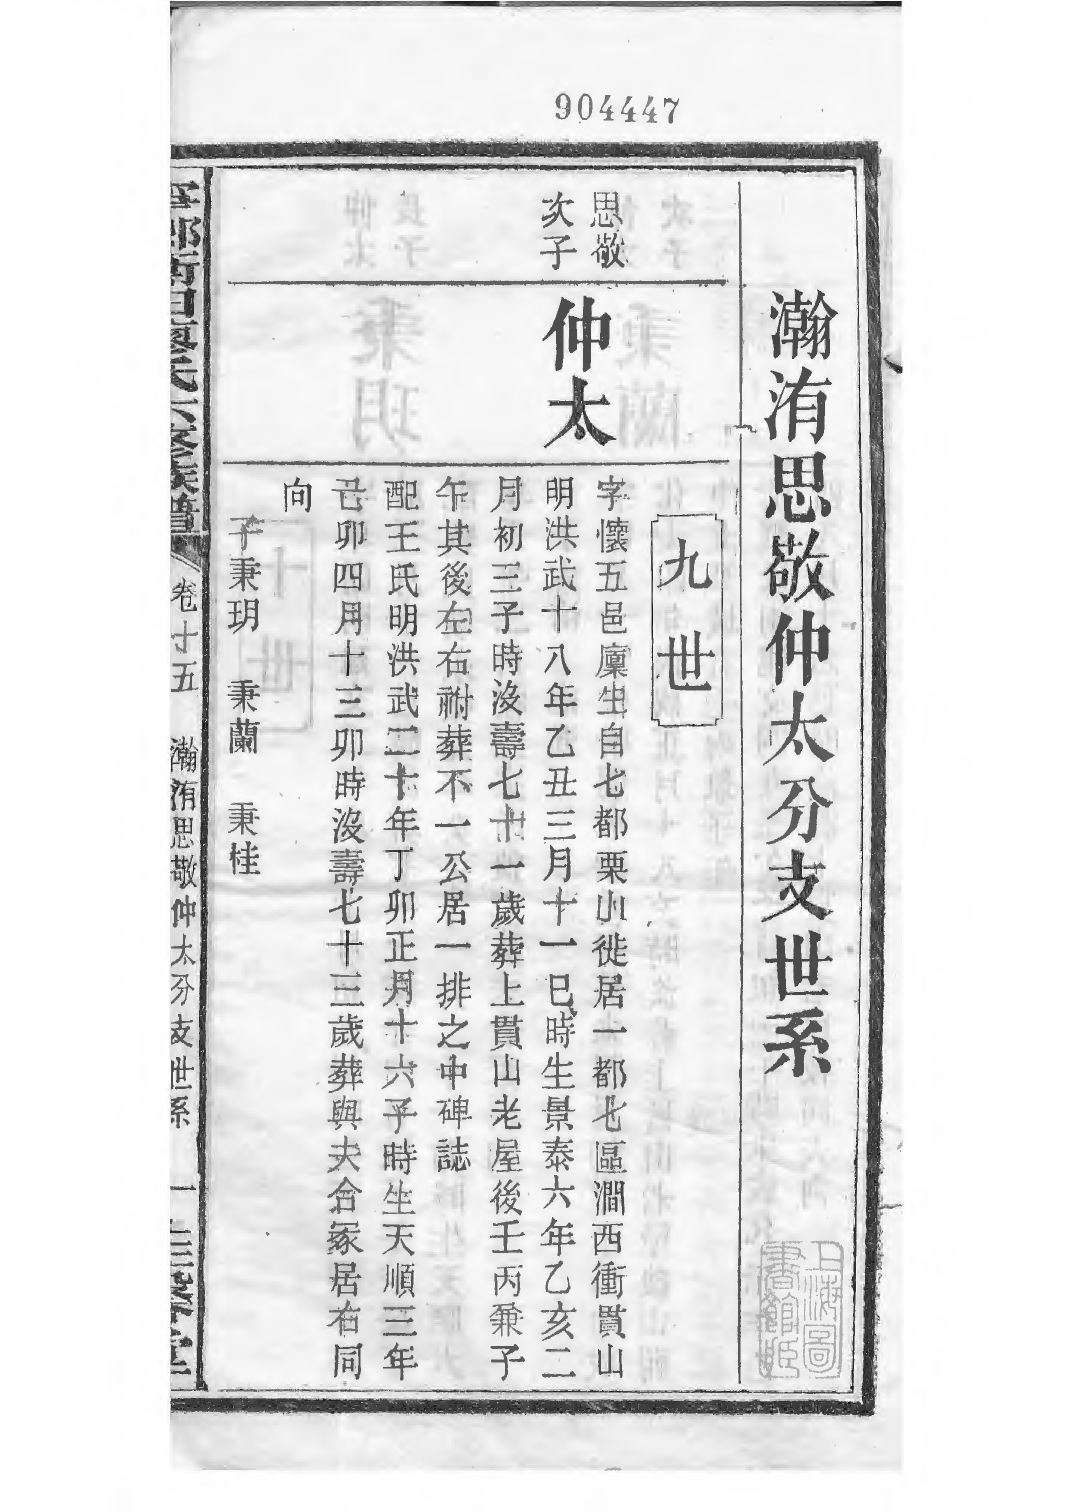 904447
瀚洧思敬仲太分支世系
九世
思敬
次子
仲太
字懷五邑廩生自七都栗山徙居一都七區澗西衝貫山
明洪武十八年乙丑三月十一巳時生景泰六年乙亥二
月初三子時沒壽七十一歲葬上貫山老屋後壬丙兼子
午其後左右祔葬不一公居一排之中碑誌
配王氏明洪武二十年丁卯正月十六子時生天順三年
己卯四月十三卯時沒壽七十三歲葬與夫合冢居右同
向
子秉玥 秉蘭 秉桂
廖氏六修族譜
卷十五 瀚洧思敬仲太分支世系 一
上海圖書館